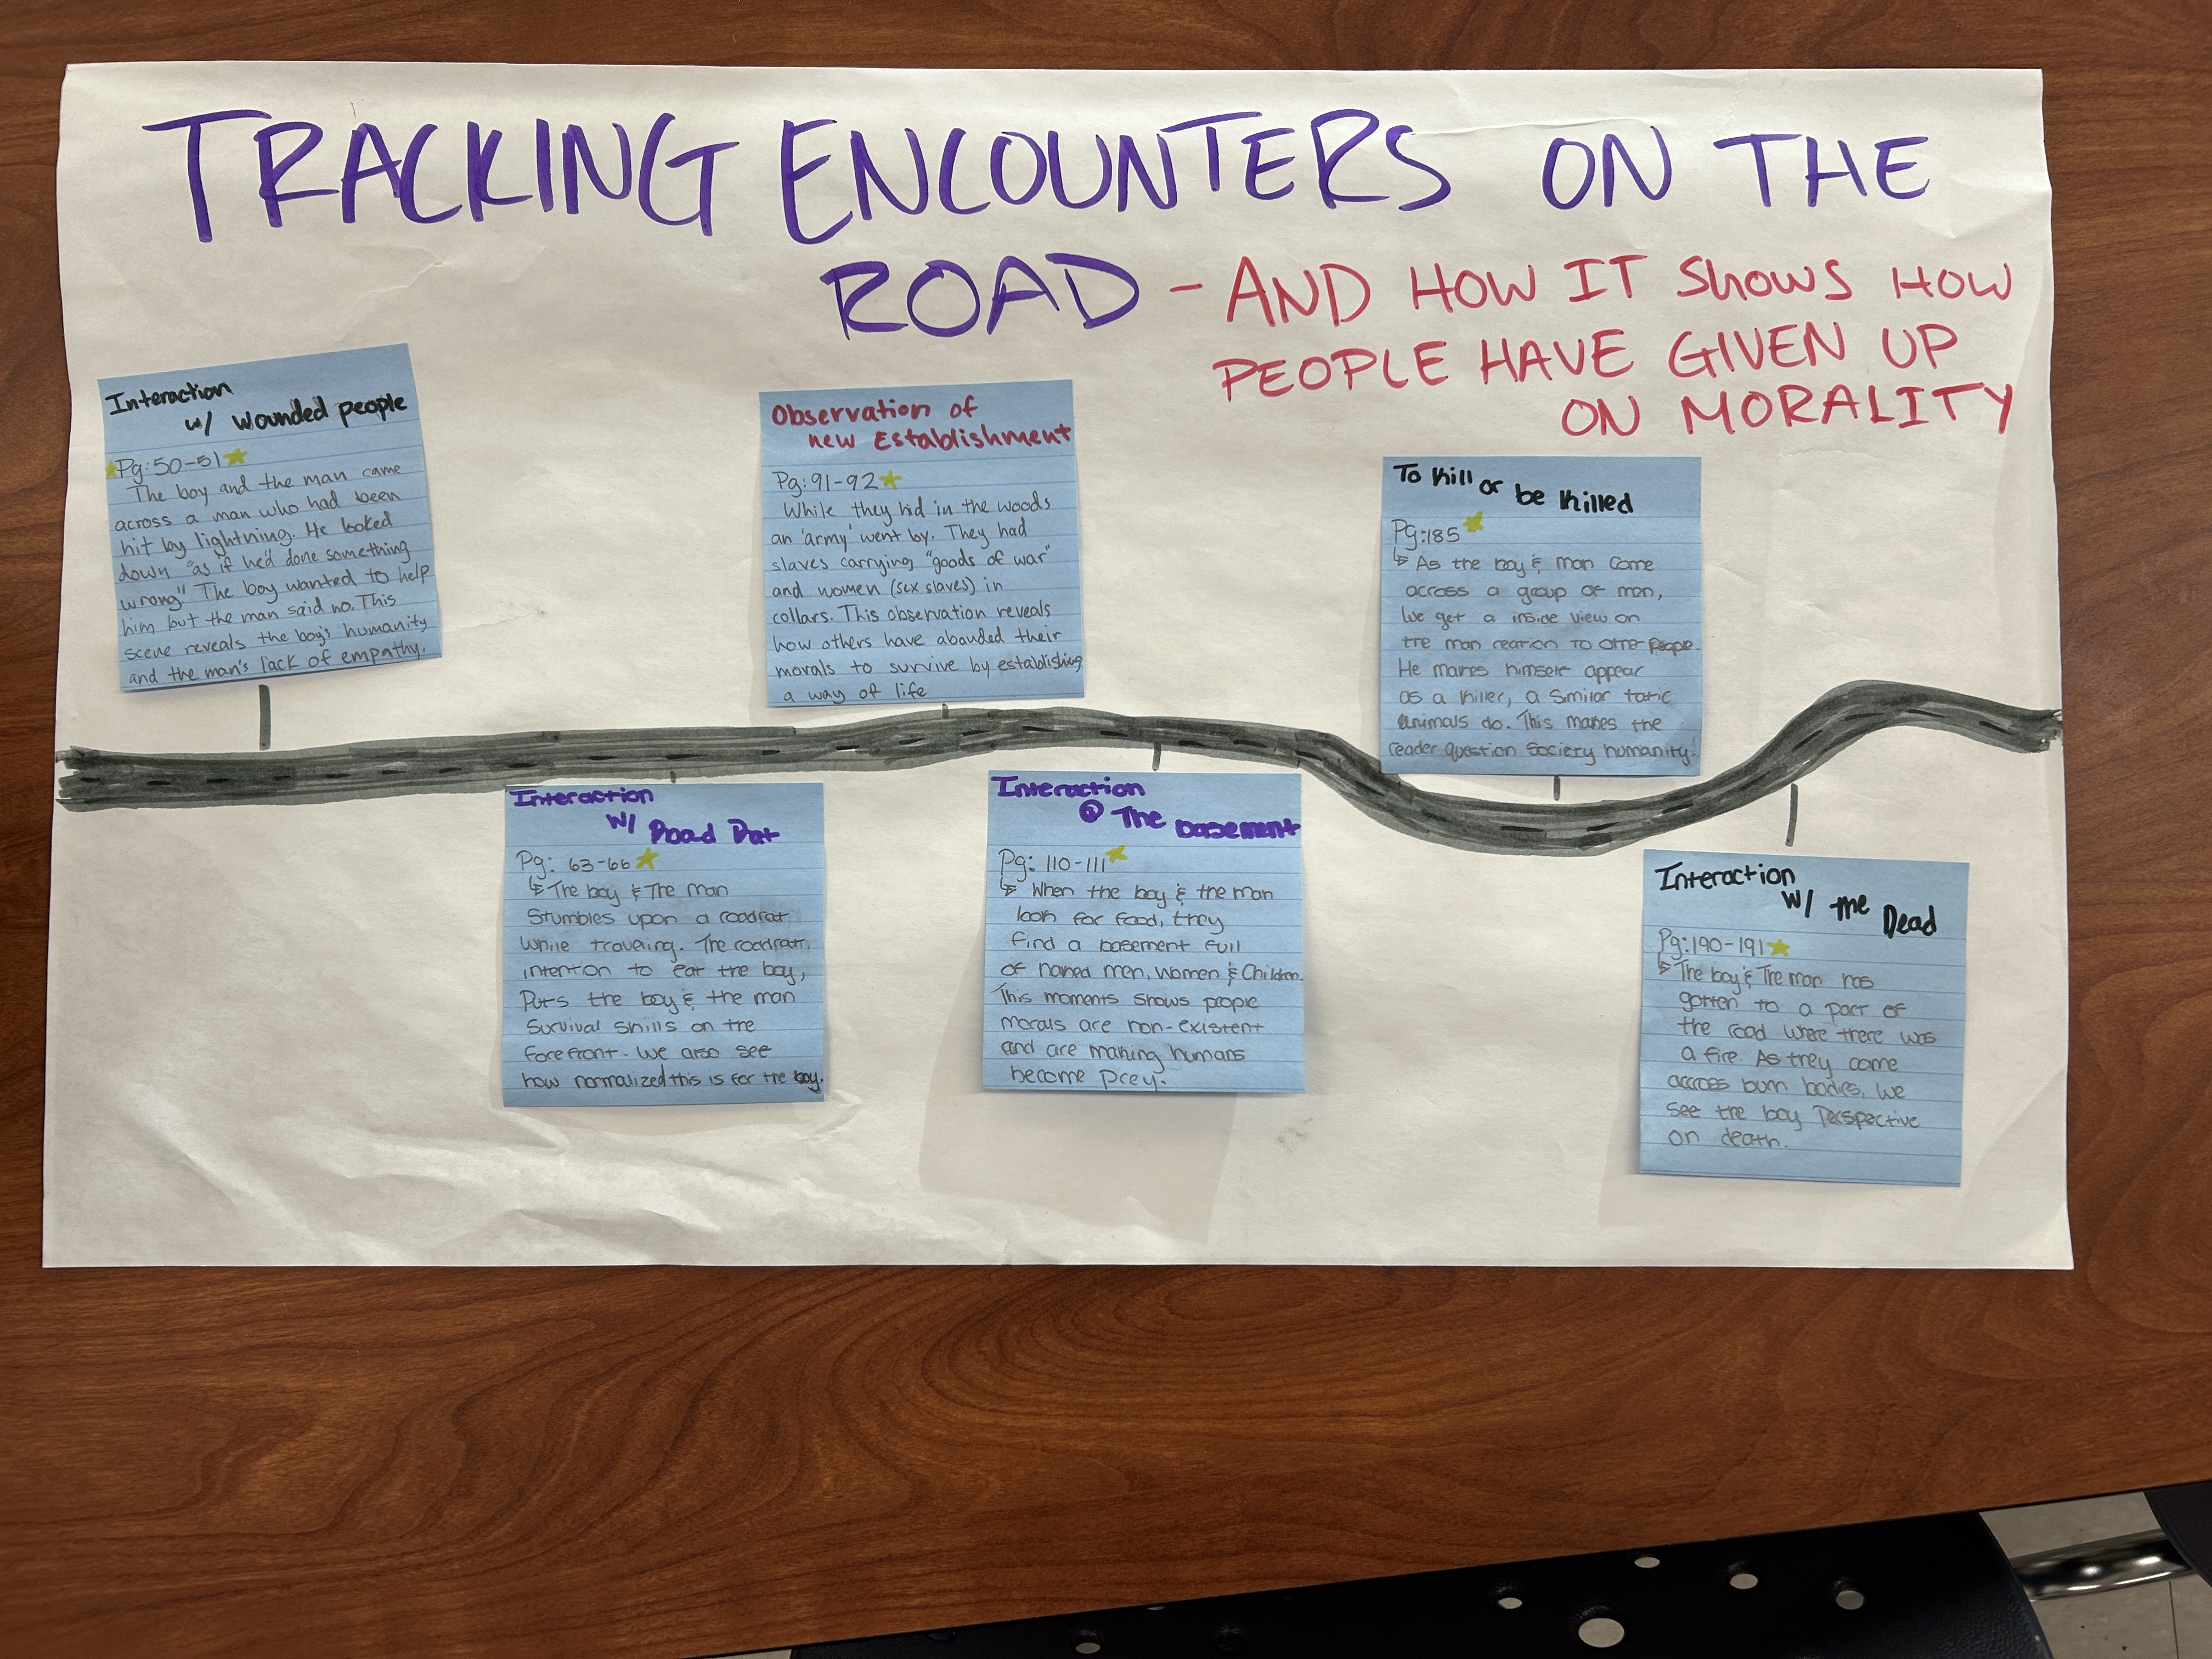 TRACKING ENCOUNTERS ON THE
ROAD - AND HOW IT Shows HOW
PEOPLE HAVE GIVEN UP
ON MORALITY
Interaction
w/ Wounded people
Pg: 50-51
The boy and the man came
across a man who had been
hit by lightning. He looked
down "as if he'd done something
wrong" The boy wanted to help
him but the man said no. This
scene reveals the boy's humanity
and the man's lack of empathy.
Interaction
W/ Road Rat
Pg: 63-66
The boy & The man
Stumbles upon a roadrat
while traveling. The roadrat
intention to eat the boy,
Puts the boy & the man
survival skills on the
forefront. We also see
how normalized this is for the boy.
Observation of
new Establishment
Pg: 91-92
While they hid in the woods
an 'army' went by. They had
slaves carrying "goods of war"
and women (sex slaves) in
collars. This observation reveals
how others have abanded their
morals to survive by establishing
a way of life
Interaction
@ The basement
Pg: 110-111
When the boy & the man
look for food, they
find a basement full
of naked men, women & Children.
This moments shows people
morals are non-existent
and are making humans
become prey.
To Kill or be Killed
Pg:185
As the boy & man come
across a group of men,
we get a inside view on
the man reation to other people.
He makes himself appear
as a killer, a similar tatic
animals do. This makes the
reader question society humanity!
Interaction
W/ the Dead
Pg: 190-191
The boy & The man has
gotten to a part of
the road where there was
a fire. As they come
accross burn bodies, we
see the boy Perspective
on death.